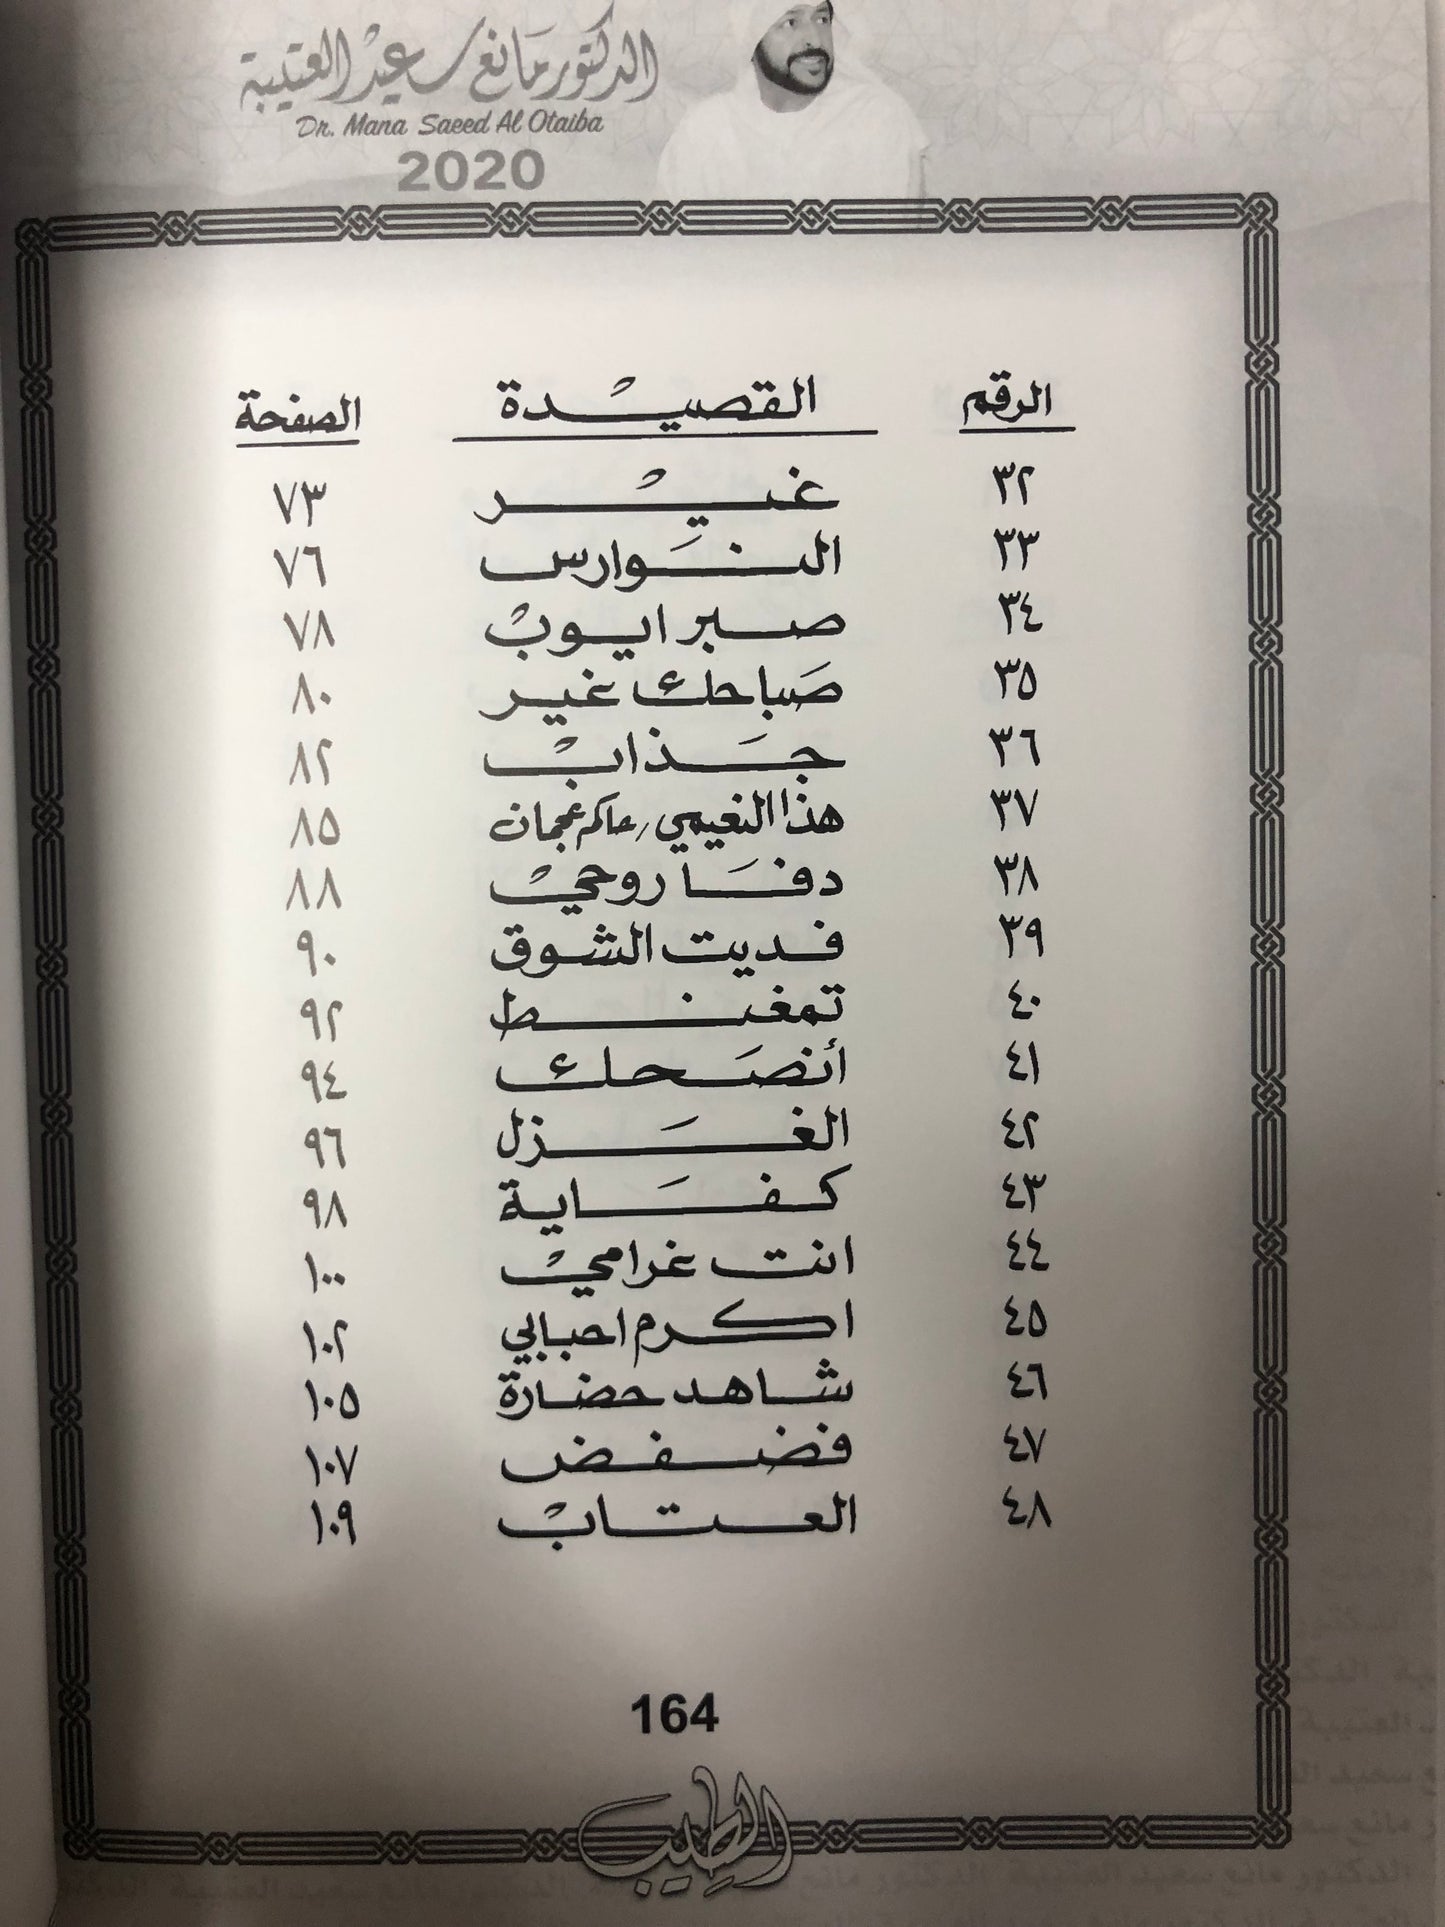 الدكتور مانع سعيد العتيبة
Dr. Mana Saeed Al Otaiba
2020
الرقم القصيدة الصفحة
٣٢ غير ٧٣
٣٣ النوارس ٧٦
٣٤ صبر ايوب ٧٨
٣٥ صباحك غير ٨٠
٣٦ جذاب ٨٢
٣٧ هذا النعيمي/حاكم عجمان ٨٥
٣٨ دفا روحي ٨٨
٣٩ فديت الشوق ٩٠
٤٠ تمغنط ٩٢
٤١ أنصحك ٩٤
٤٢ الغزل ٩٦
٤٣ كفاية ٩٨
٤٤ انت غرامي ١٠٠
٤٥ اكرم احبابي ١٠٢
٤٦ شاهد حضارة ١٠٥
٤٧ فضفض ١٠٧
٤٨ العتاب ١٠٩
164
الطيب